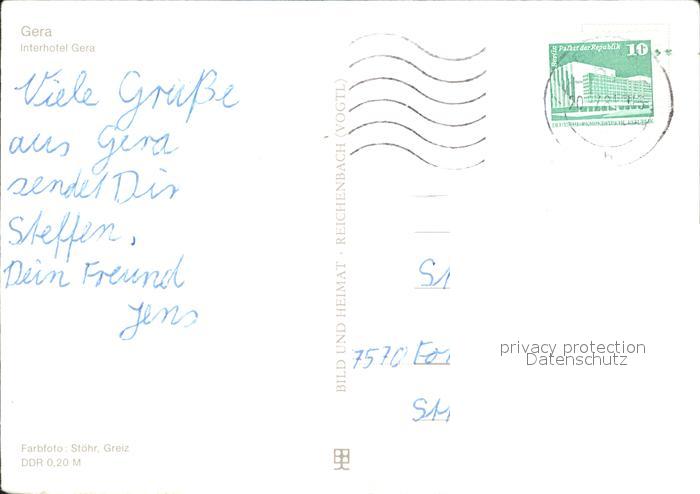 Gera
Interhotel Gera
Viele Grüße
aus Gera
sendet Dir
Steffen,
Dein Freund
Jens
Farbfoto: Stöhr, Greiz
DDR 0,20 M
BILD UND HEIMAT · REICHENBACH (VOGTL)
Berlin Palast der Republik 10
DEUTSCHE DEMOKRATISCHE REPUBLIK
St
7570 For
St
privacy protection
Datenschutz